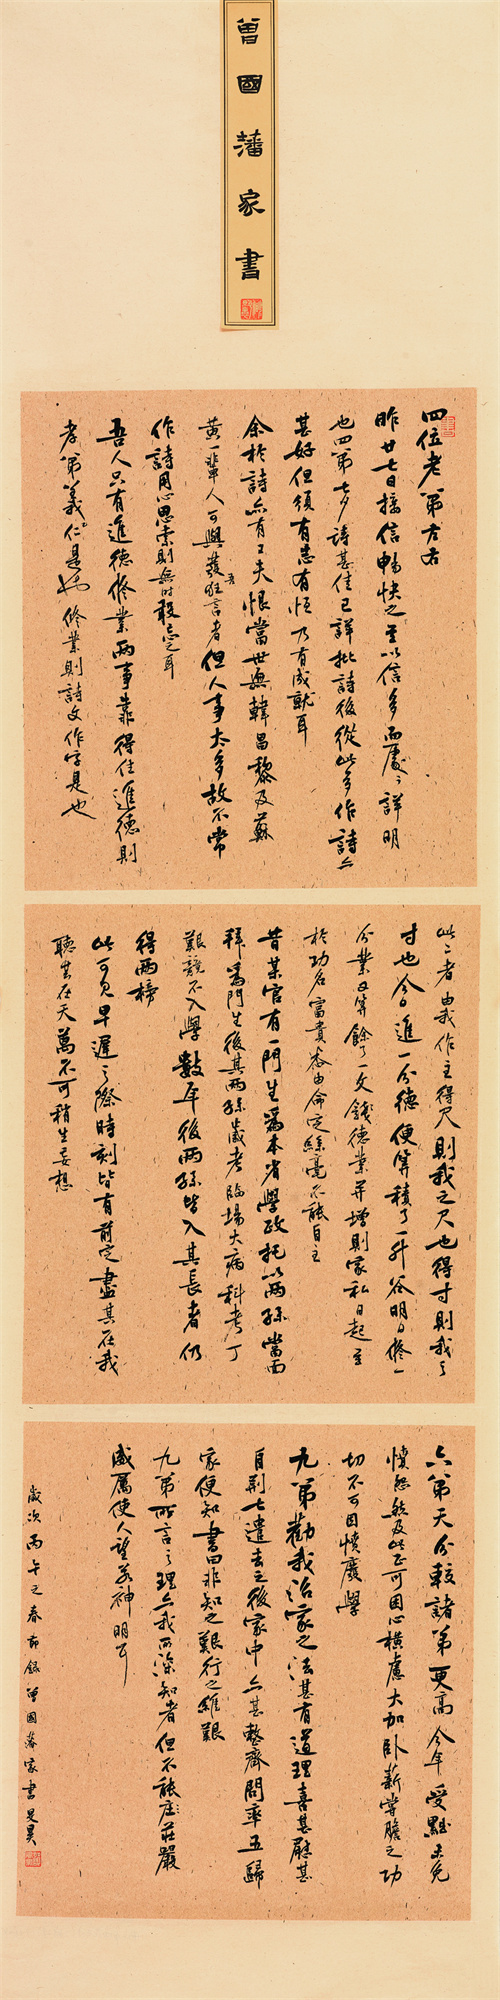 曾國藩家書
四位老弟左右
昨廿七日接信暢快之至以信多而處處詳明
也四弟七夕詩甚佳已詳批詩後從此多作詩亦
甚好但須有志有恒乃有成就耳
余於詩亦有工夫恨當世無韓昌黎及蘇
黃一輩人可與發吾狂言者但人事太多故不常
作詩用心思索則無時敢忘之耳
吾人只有進德修業兩事靠得住進德則
孝弟義仁是也修業則詩文作字是也
此二者由我作主得尺則我之尺也得寸則我之
寸也今日進一分德便算積了一升谷明日修一
分業又算餘了一文錢德業并增則家私日起至
於功名富貴悉由命定絲毫不能自主
昔某官有一門生為本省學政托以兩孫當面
拜為門生後其兩孫歲考臨場大病科考丁
艱竟不入學數年後兩孫皆入其長者仍
得兩榜
此可見早遲之際時刻皆有前定盡其在我
聽其在天萬不可稍生妄想
六弟天分較諸弟更高今年受黜未免
憤怨然及此正可困心橫慮大加臥薪嘗膽之功
切不可因憤廢學
九弟勸我治家之法甚有道理喜甚慰甚
自荆七遣去之後家中亦甚整齊問率五歸
家便知書曰非知之艱行之維艱
九弟所言之理亦我所深知者但不能庄莊嚴
威厲使人望若神明耳
歲次丙午之春節錄曾國藩家書